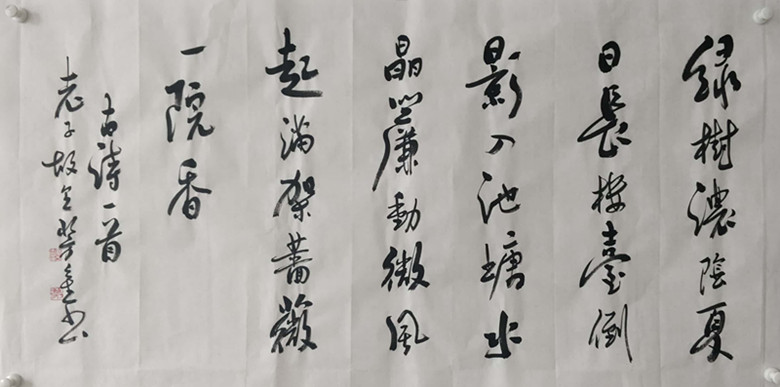 綠樹濃陰夏
日長樓臺倒
影入池塘水
晶簾動微風
起滿架薔薇
一院香
古詩一首
老子故里